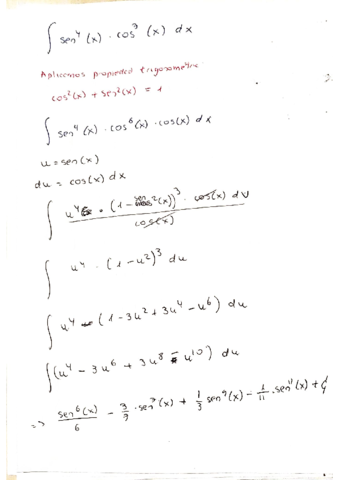 ∫ sen⁴(x) · cos⁷(x) dx
Aplicamos propiedad trigonometria
cos²(x) + sen²(x) = 1
∫ sen⁴(x) · cos⁶(x) · cos(x) dx
u = sen(x)
du = cos(x) dx
∫ u⁴ · (1 - sen²(x))³ · cos(x) du
cos(x)
∫ u⁴ · (1 - u²)³ du
∫ u⁴ (1 - 3u² + 3u⁴ - u⁶) du
∫ (u⁴ - 3u⁶ + 3u⁸ - u¹⁰) du
=> sen⁶(x)/6 - 3/7 · sen⁷(x) + 1/3 sen⁹(x) - 1/11 · sen¹¹(x) + C